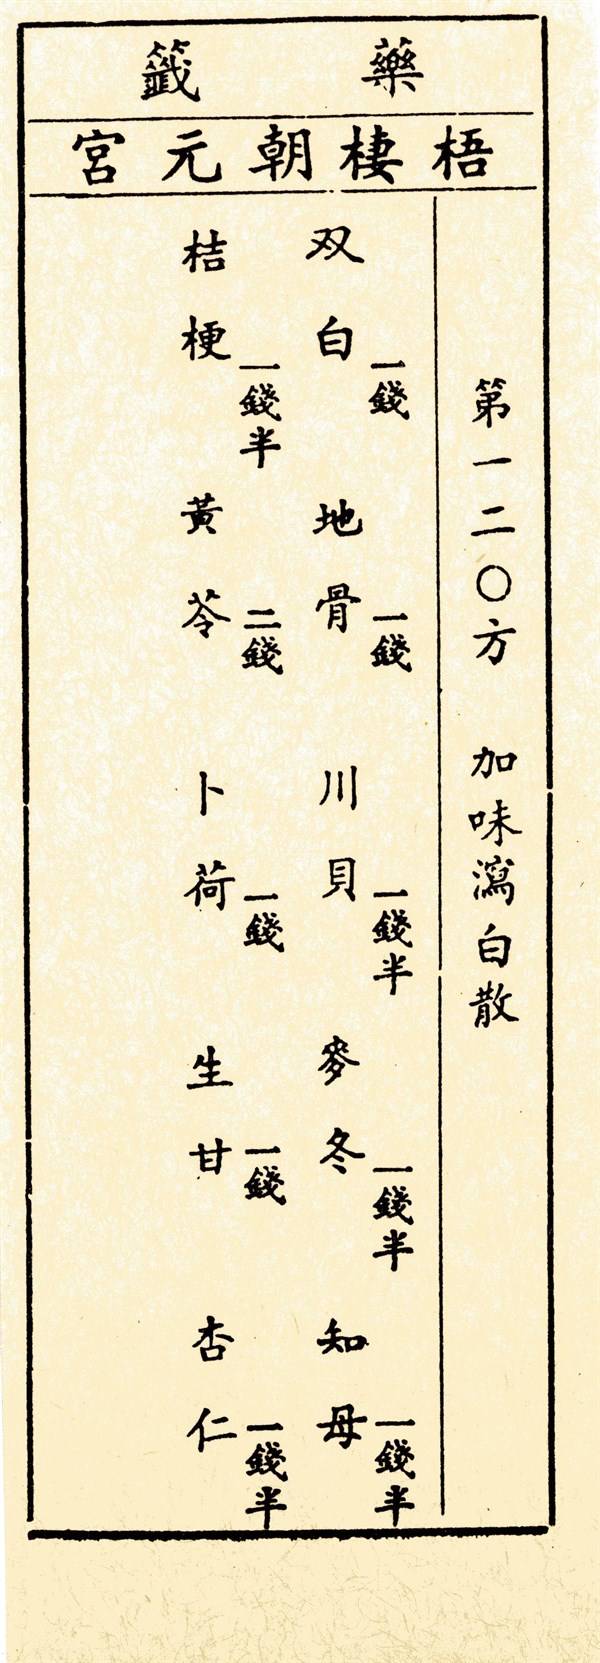 藥籤
梧棲朝元宮
第一二○方 加味瀉白散
双白一錢 地骨一錢 川貝一錢半 麥冬一錢半 知母一錢半
桔梗一錢半 黃芩二錢 卜荷一錢 生甘一錢 杏仁一錢半